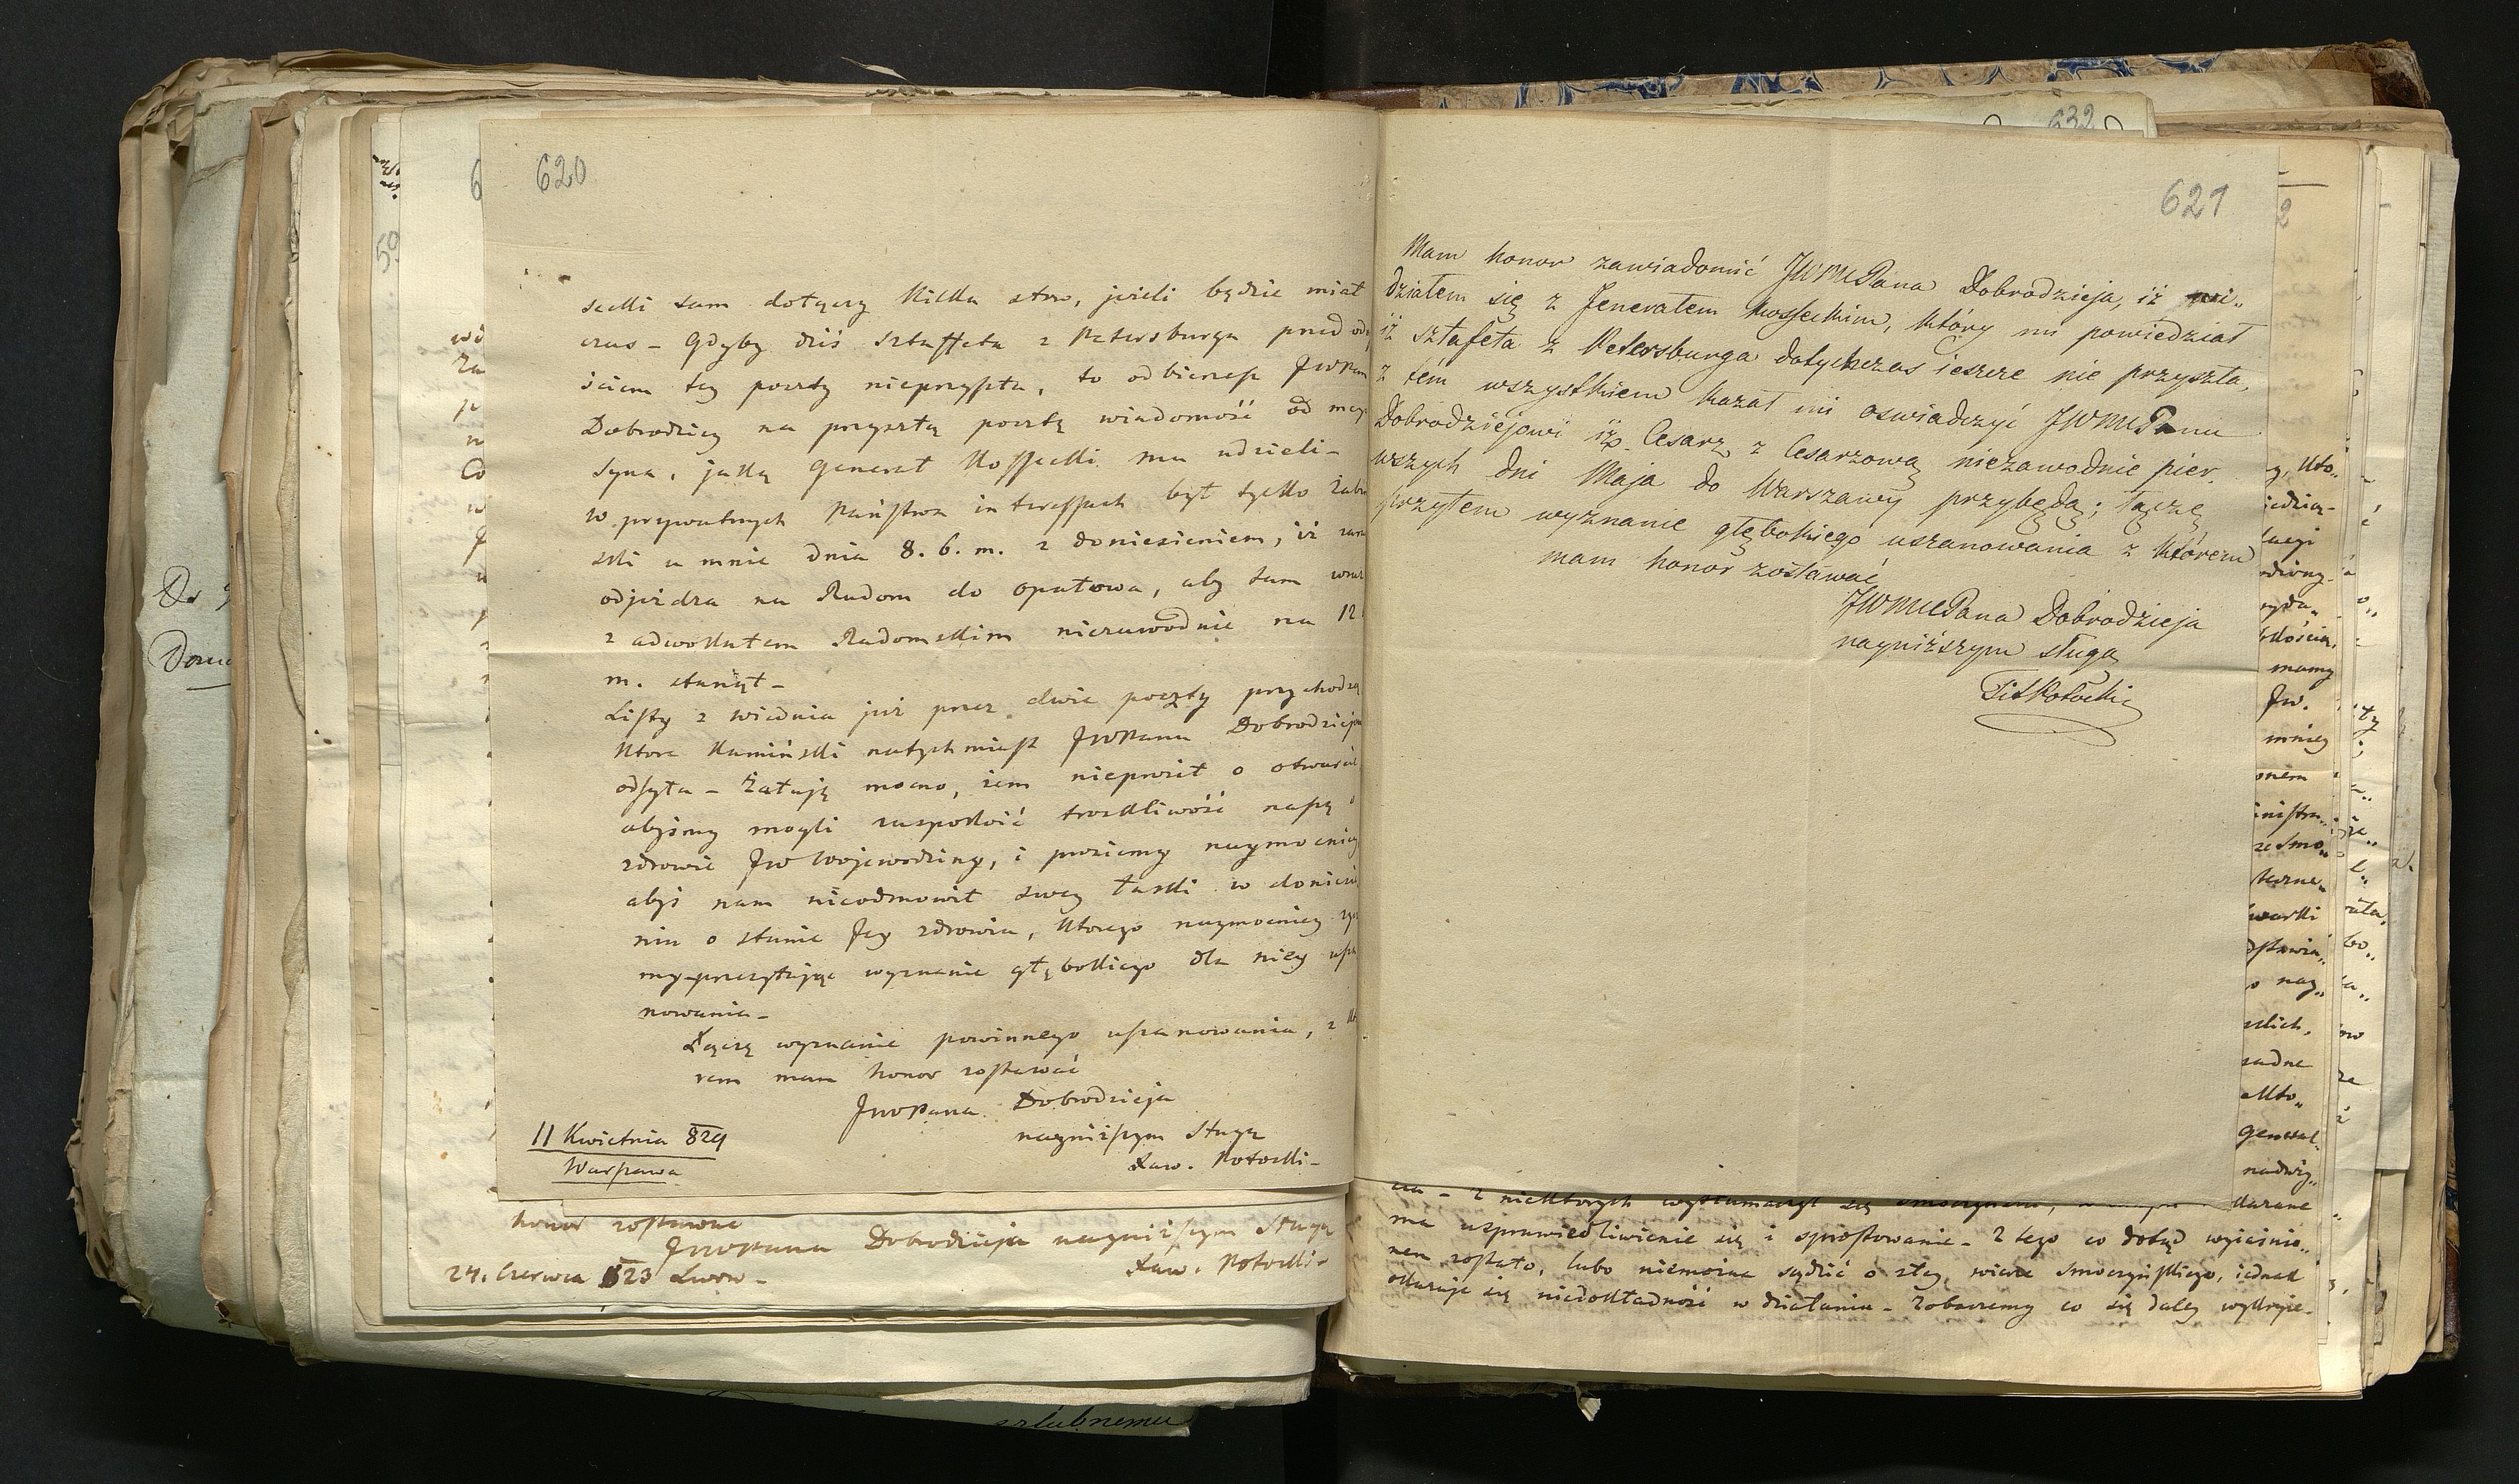 620
scelli sam dołączy kilka słow, jeżeli będzie miał
czas – Gdyby dziś sztaffeta z Petersburga przed ode,
ściem tey poczty nieprzyszła, to odbierzesz JWPan
Dobrodziey na przyszłą pocztę wiadomość od mego
syna, jaką Generał Kossecki mu udzieli –
W prywatnych Państwa interessach był tylko Zabie
ski u mnie dnia 8. b. m. z doniesieniem, iż zaraz
odjeżdza na Radom do Opatowa, aby tam wraz
z adwokatem Radomskim niezawodnie na 12.
m. stanął –
Listy z Wiednia już przez dwie poczty przychodzą
ktore Kamiński natychmiast JWPanu Dobrodziejowi
odsyła – Żałuję mocno, żem nieprosił o otwarcie
abyśmy mogli zaspokoić troskliwość naszę o
zdrowie JW Wojewodziny, i prosiemy naymocniey
abyś nam nieodmowił swey łaski w doniesie
niu o stanie Jey zdrowia, ktorego naymocniey życz
my przesyłając wyznanie głębokiego dla niey usza
nowania –
Łączę wyznanie powinnego uszanowania, z kto
rem mam honor zostawać
JWPana Dobrodzieja
nayniższym Sługą
Xaw. Potocki –
11 Kwietnia 829
Warszawa
honor zostawać
JWPana Dobrodzieja nayniższym Sługą
Xaw. Potocki –
24. Czerwca 823 Lwow –
632
621
Mam honor zawiadomić JWMCPana Dobrodzieja, iż wi„
działem się z Jenerałem Kosseckim, który mi powiedział
iż sztafeta z Petersburga dotychczas ieszcze nie przyszła,
z tém wszystkiem kazał mi oswiadczyć JWMCPanu
Dobrodziejowi iż Cesarz z Cesarzową niezawodnie pier„
wszych dni Maja do Warszawy przybędą; łączę
przytem wyznanie głębokiego uszanowania z którem
mam honor zostawać
JWMCPana Dobrodzieja
nayniższym sługą
Tit Potocki
z niektorych wytłumaczył się
ma usprawiedliwienie się i sprostowanie – Z tego co dotąd wyjaśnio„
nem zostało, lubo niemożna sądzić o złey wierze Smoczyńskiego, iednak
okazuje się niedokładność w działaniu – Zobaczemy co się daley wykryje –
szlubnemu